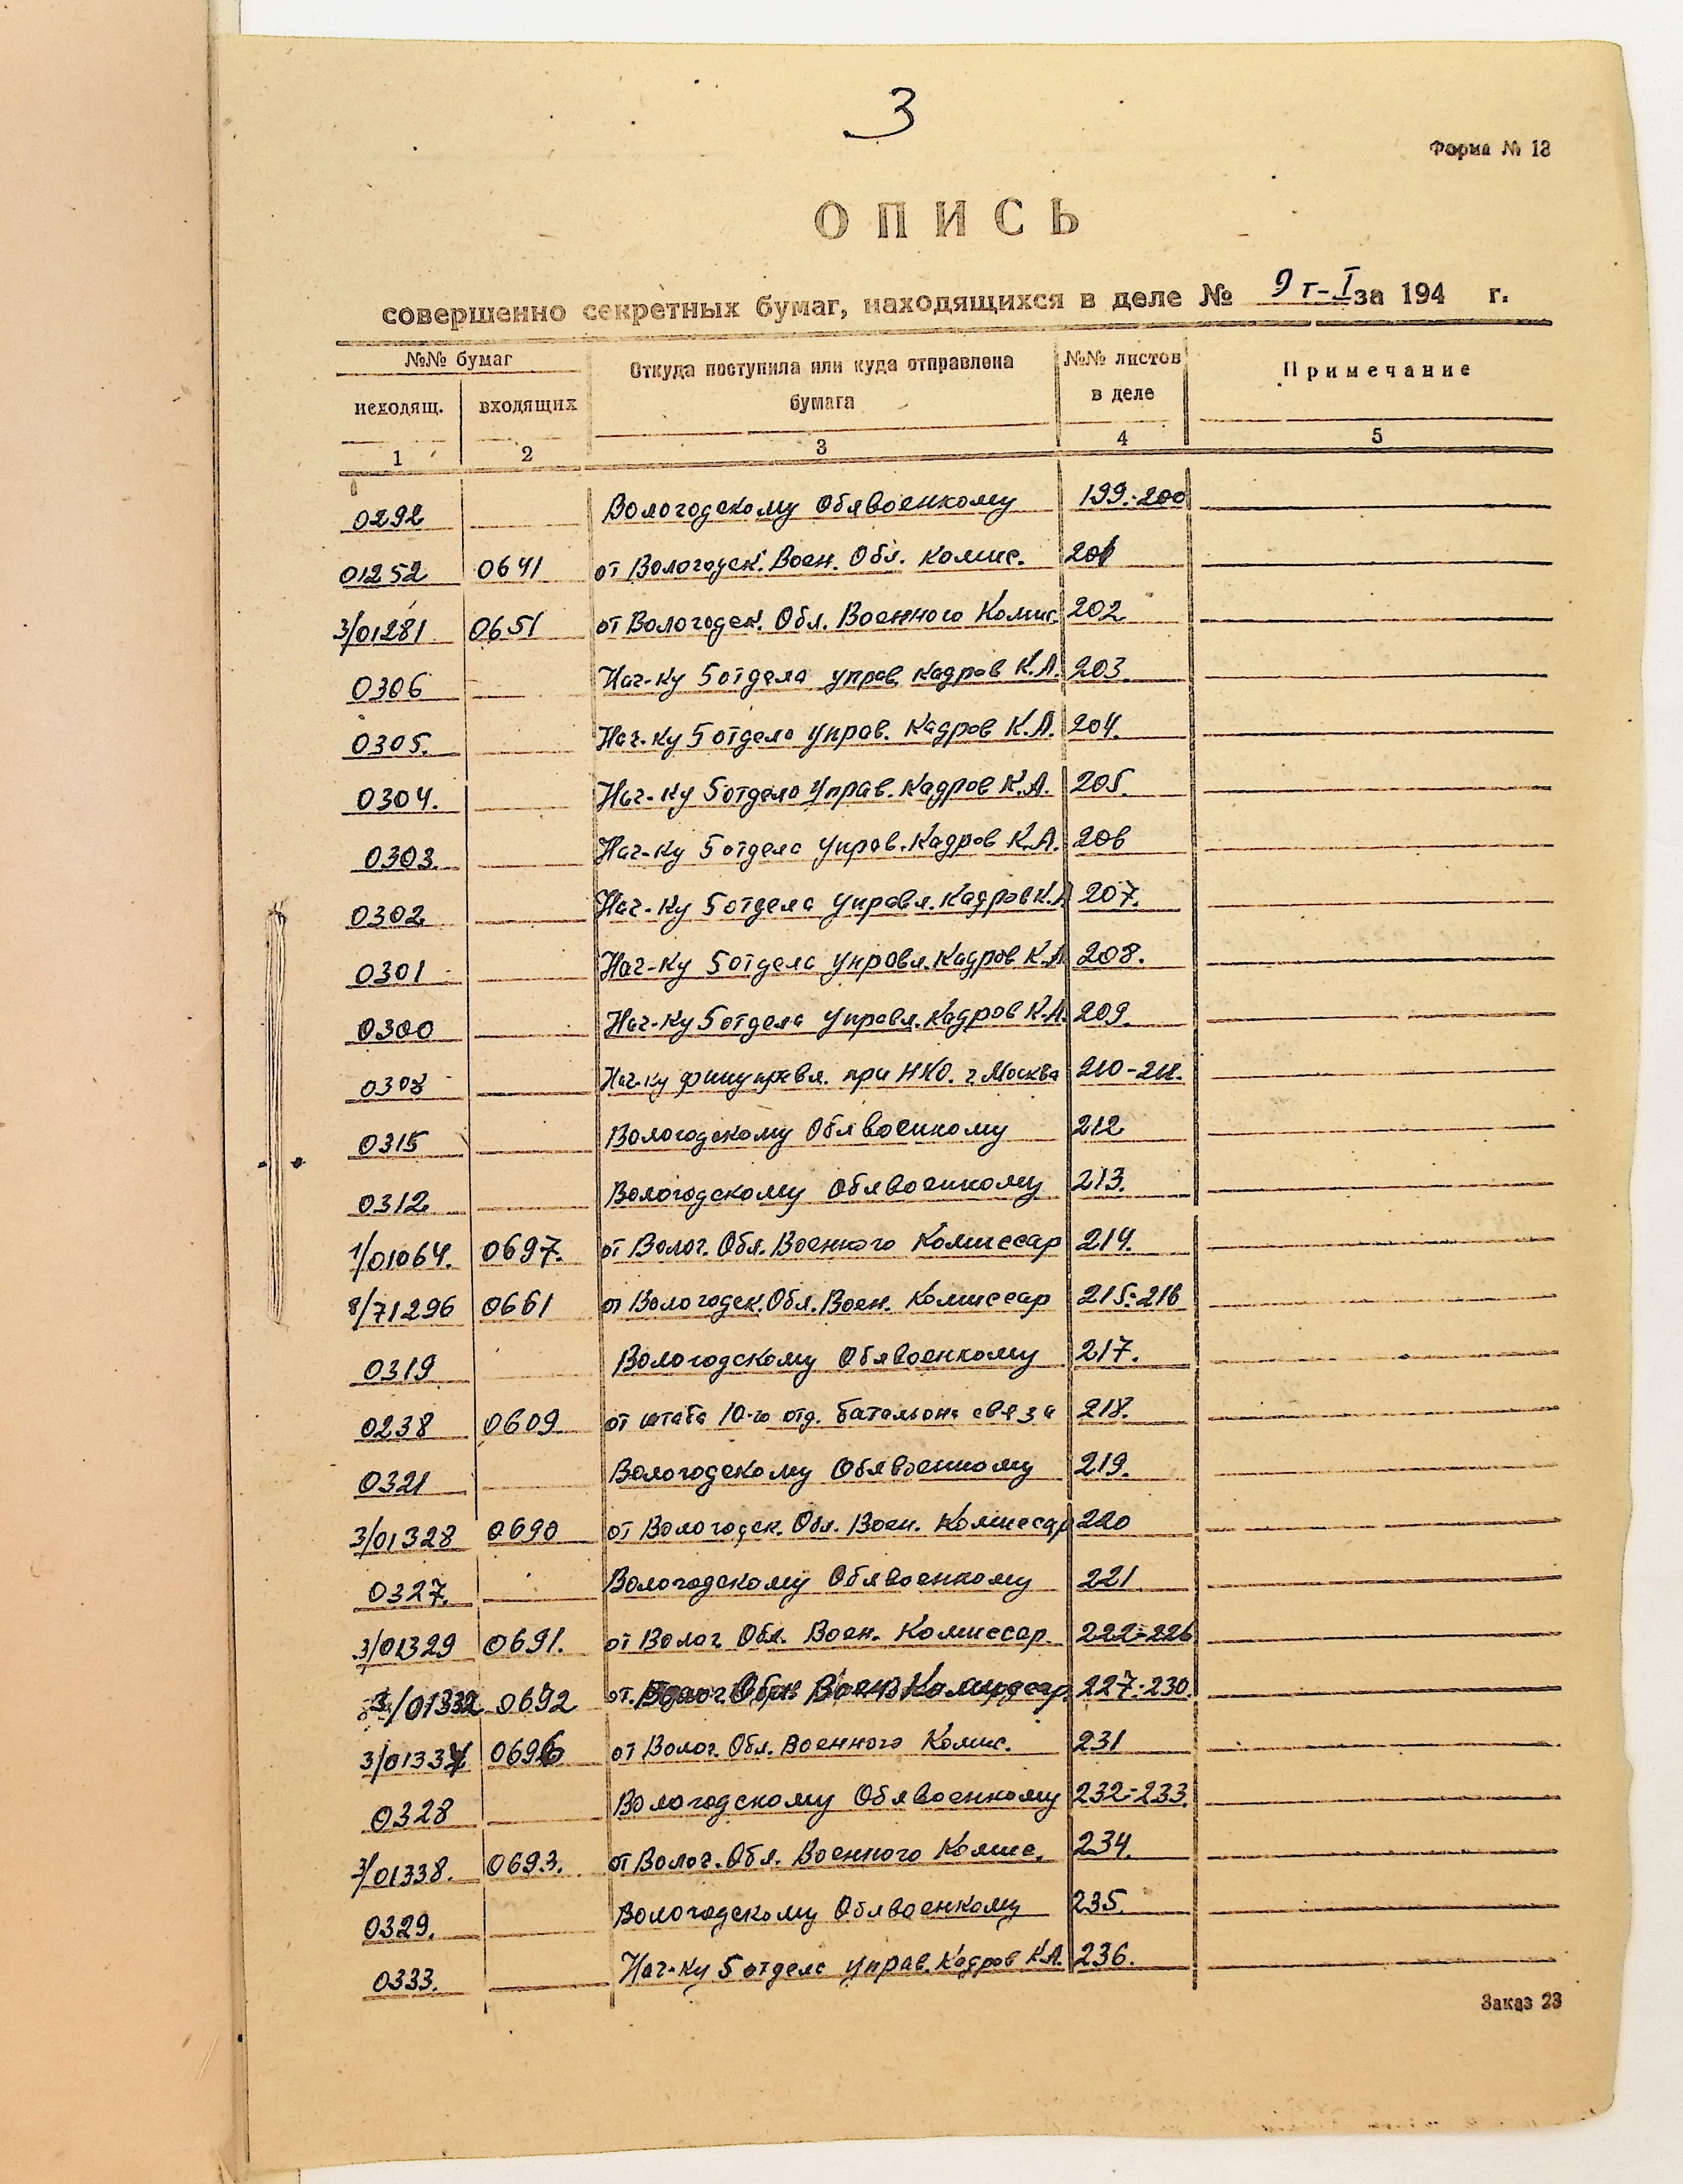 3
Форма № 13
ОПИСЬ
совершенно секретных бумаг, находящихся в деле № 9 г-I за 194 г.
№№ бумаг Откуда поступила или куда отправлена №№ листов Примечание
исходящ. входящих бумага в деле
1 2 3 4 5
0292 Вологодскому Облвоенкому 199-200
01252 0641 от Вологодск. Воен. Обл. комис. 201
3/01281 0651 от Вологодск. Обл. Военного Комис. 202
0306 Нач-ку 5 отдела управ. кадров К.А. 203.
0305. Нач-ку 5 отдела управ. кадров К.А. 204.
0304. Нач-ку 5 отдела управ. кадров К.А. 205.
0303. Нач-ку 5 отдела управ. кадров К.А. 206
0302 Нач-ку 5 отдела управл. кадров К.А 207.
0301 Нач-ку 5 отдела управл. кадров К.А 208.
0300 Нач-ку 5 отдела управл. кадров К.А. 209.
Нач-ку финуправл. при НКО. г Москва 210-211.
0315 Вологодскому Облвоенкому 212
0312 Вологодскому Облвоенкому 213.
1/01064. 0697. от Волог. Обл. Военного Комиссар 214.
8/71296 0661 от Вологодск. Обл. Воен. Комиссар 215-216
0319 Вологодскому Облвоенкому 217.
0238 0609 от штаба 10-го отд. батальона связа 218.
0321 Вологодскому Облвоенкому 219.
3/01328 0690 от Вологодск. Обл. Воен. Комиссар 220
0327. Вологодскому Облвоенкому 221
3/01329 0691. от Волог Обл. Воен. Комиссар. 222-226
3/01332 0692 от. Волог Обл Воен Комиссар. 227-230.
0696 от Волог. Обл. Военного Комис. 231
0328 Вологодскому Облвоенкому 232-233.
3/01338. 0693. от Волог. Обл. Военного Комис. 234.
0329. Вологодскому Облвоенкому 235.
0333. Нач-ку 5 отдела управ. кадров К.А. 236.
Заказ 23